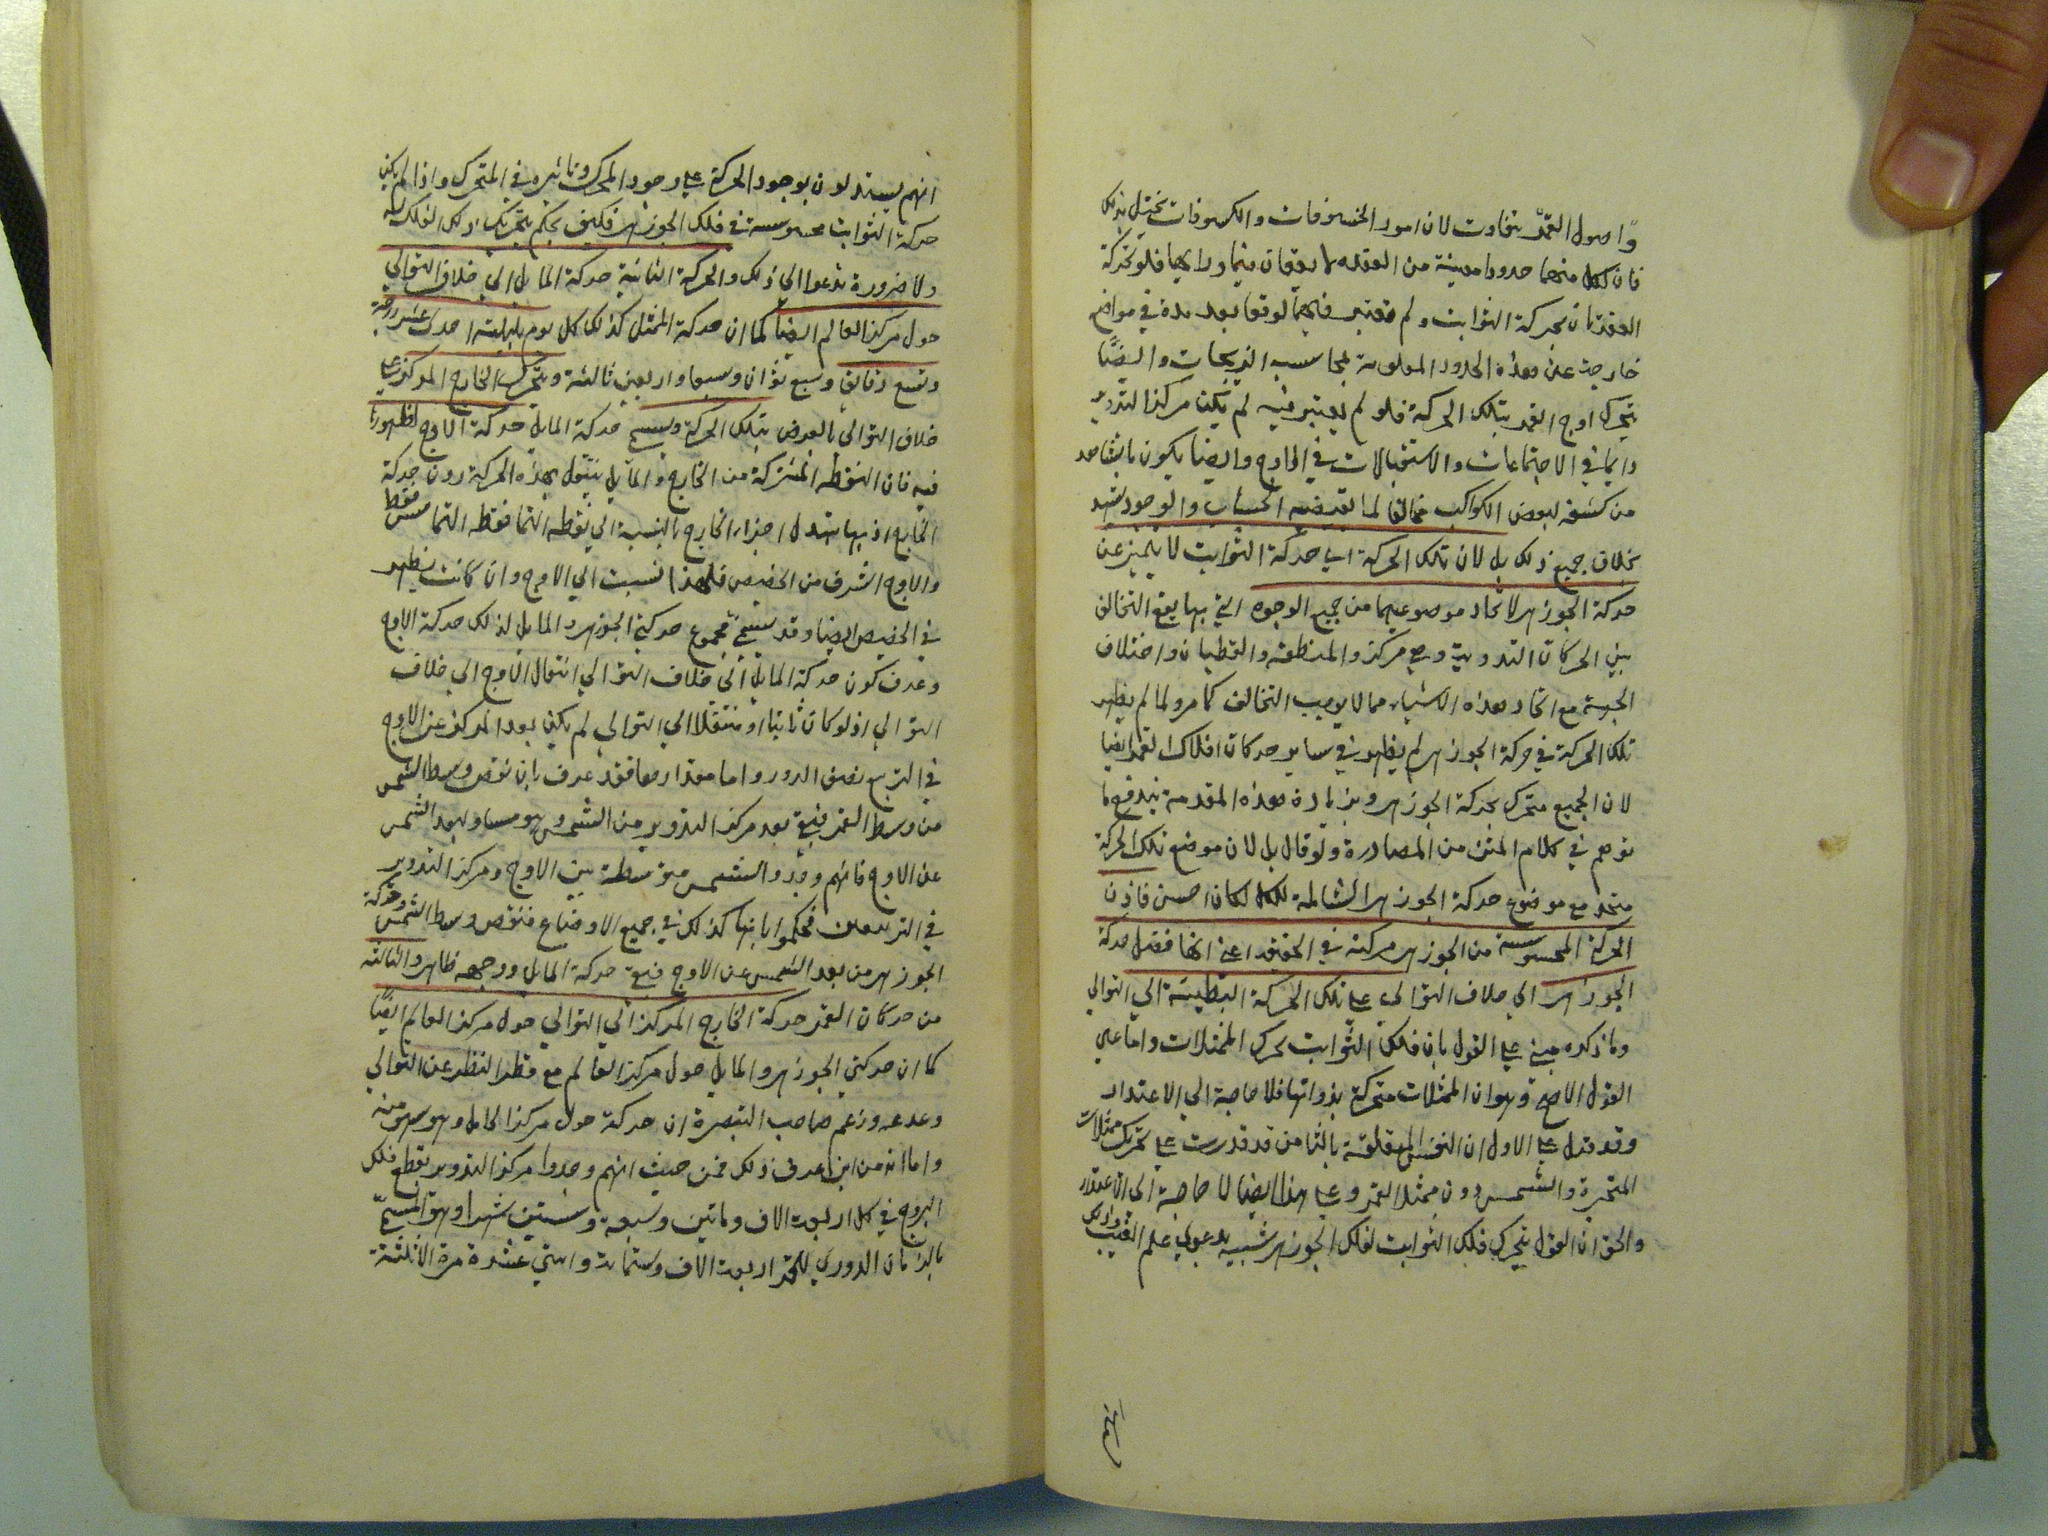 واصول القمر تتفاوت لان امور الخسوفات والكسوفات تختل بذلك
فان لكل منهما حدودا معينة من العقدة لا يقعان فيما وراءها فلو تحركة
العقدتان بحركة الثوابت ولم تعتبر فيهما لوقعا بعد مدة في مواضع
خارجة عن هذه الحدود المعلومة بمحاسبة الزيجات وايضا
يتحرك اوج القمر بتلك الحركة فلو لم يعتبر فيه لم يكن مركز التدوير
دايما في الاجتماعات والاستقبالات في الاوج وايضا يكون ما يشاهد
من كسفه لبعض الكواكب مخالفا لما يقتضيه الحساب والوجود يشهد
بخلاف جميع ذلك بل لان تلك الحركة اي حركة الثوابت لا يتميز عن
حركة الجوزهر لاتحاد موضوعيهما من جميع الوجوه التي بها يقع التخالف
بين الحركات التدويرية وهي مركز والمنطقة والقطبان واختلاف
الجسم مع اتحاد هذه الاشياء مما لا يوجب التخالف كما مر ولما لم يظهر
تلك الحركة في حركة الجوزهر لم يظهر في ساير حركات افلاك القمر ايضا
لان الجميع متحرك بحركة الجوزهر وبزيادة هذه المقدمة يندفع ما
توهم في كلام المتن من المصادرة ولو قال بل لان موضع تلك الحركة
متحد مع موضوع حركة الجوزهر الشاملة للكل لكان احسن فاذن
الحركة المحسوسة من الجوزهر مركبة في الحقيقة اعني انها فضل حركة
الجوزهر الي خلاف التوالي علي تلك الحركة البطيئة الي التوالي
وما ذكره مبني علي القول بان فلك الثوابت يحرك الممثلات واما علي
القول الاصح وهو ان الممثلات متحركة بذواتها فلا حاجة الي الاعتذار
وقد قيل علي الاول ان النفس المتعلقة بالثامن قد قدرت علي تحريك ممثلات
المتحيرة والشمس دون ممثل القمر وعلي هذا ايضا لا حاجة الي الاعتذار
والحق ان القول بتحريك فلك الثوابت لفلك الجوزهر شبيه بدعوي علم الغيب وذلك
انهم
انهم يستدلون بوجود الحركة علي وجود المحرك وتاثيره في المتحرك واذا لم يكن
حركة الثوابت محسوسة في فلك الجوزهر فكيف يحكم بتحريك ذلك الفلك له
ولا ضرورة تدعوا الي ذلك والحركة الثانية حركة المايل الي خلاف التوالي
حول مركز العالم ايضا كما ان حركة الممثل كذلك كل يوم بليلته احدي عشر درجة
وتسع دقائق وسبع ثوان وسبعا واربعين ثالثة ويتحرك الخارج المركز علي
خلاف التوالي بالعرض بتلك الحركة ويسمي حركة المايل حركة الاوج لظهورها
فيه فان النقطة المشتركة من الخارج والمايل ينتقل بهذه الحركة دون حركة
الخارج اذ بها يتبدل اجزاء الخارج بالنسبة الي نقطة التماس لا نقطة التماس فقط
والاوج اشرف من الحضيض فلهذا نسبت الي الاوج وان كانت يظهر
في الحضيض ايضا وقد يسمي مجموع حركتي الجوزهر والمايل لذلك حركة الاوج
وعرف كون حركة المايل الي خلاف التوالي انتقال الاوج الي خلاف
التوالي اذ لو كان ثابتا او منتقلا الي التوالي لم يكن بعد المركز عن الاوج
في التربيع نصف الدور واما مقدارها فقد عرف بان نقص وسط الشمس
من وسط القمر فبقي بعد مركز التدوير من الشمس وهو مساو لبعد الشمس
عن الاوج فانهم وجدوا الشمس متوسطة بين الاوج ومركز التدوير
في التربيعين فحكموا بانها كذلك في جميع الاوضاع فنقص وسط الشمس وحركة
الجوزهر من بعد الشمس عن الاوج فبقي حركة المايل ووجهه ظاهر والثالثة
من حركات القمر حركة الخارج المركز الي التوالي حول مركز العالم ايضا
كما ان حركتي الجوزهر والمايل حول مركز العالم مع قطع النظر عن التوالي
وعدمه وزعم صاحب التبصرة ان حركة حول مركز الحامل وهو سهو منه
واما انه من اين عرف ذلك فمن حيث انهم وجدوا مركز التدوير يقطع فلك
البروج في كل اربعة الاف وماتين وسبعة وستين شهرا وهو المسمي
بالزمان الدوري للقمر اربعة الاف وستماية واثني عشرة مرة الا ثلثة